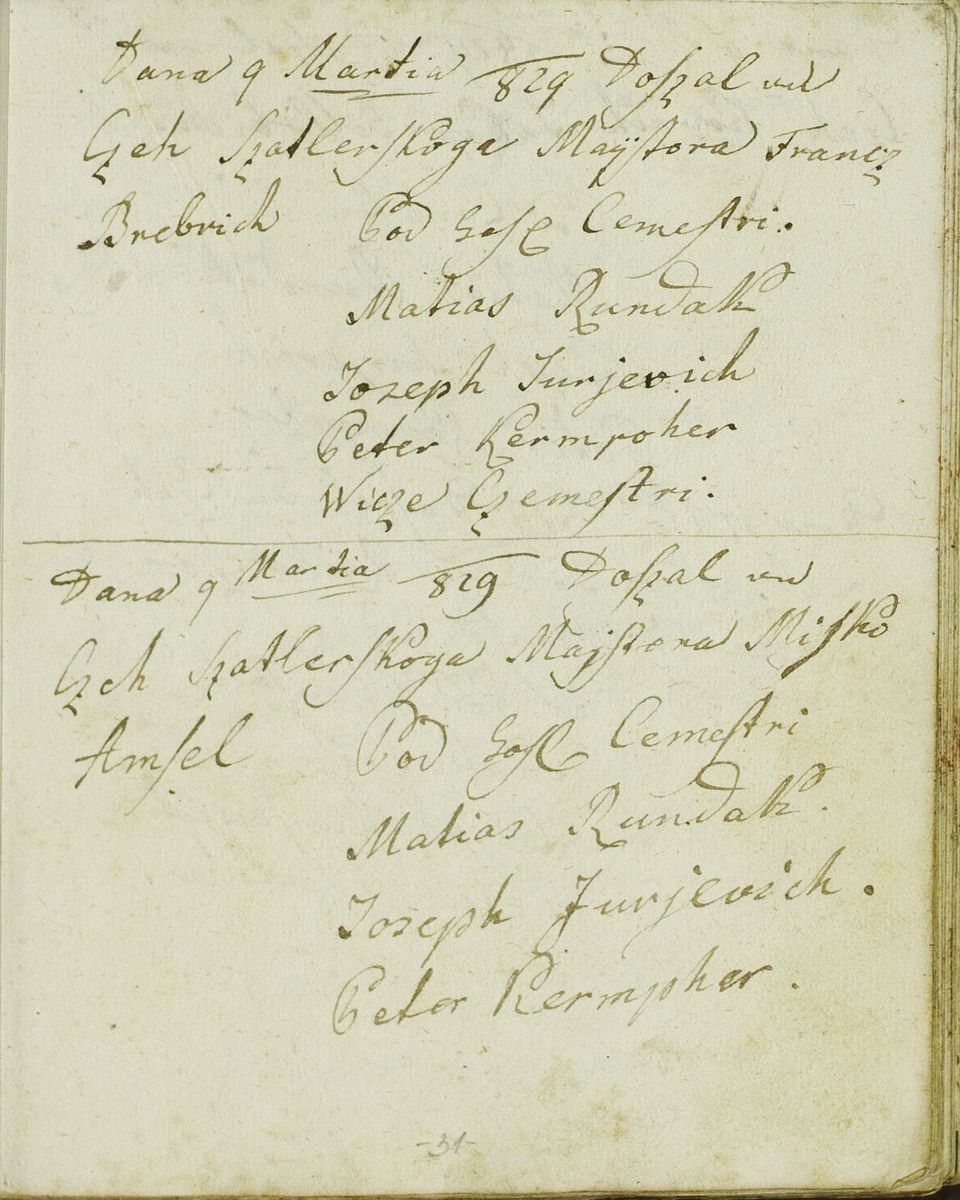 Dana 9 Martia 829 Doszal vu
Czeh Szatlerskoga Maÿstora Francz
Brebrich Pod Gosp Cemestri.
Matias Rundak
Joseph Jurjevich
Peter Kermpoher
Wicze Czemestri.
Dana 9 Martia 829 Doszal vu
Czeh Szatlerskoga Majstora Misko
Amsel Pod Gosp Cemestri
Matias Rundak.
Joseph Jurjevich.
Peter Kermpher.
-31-